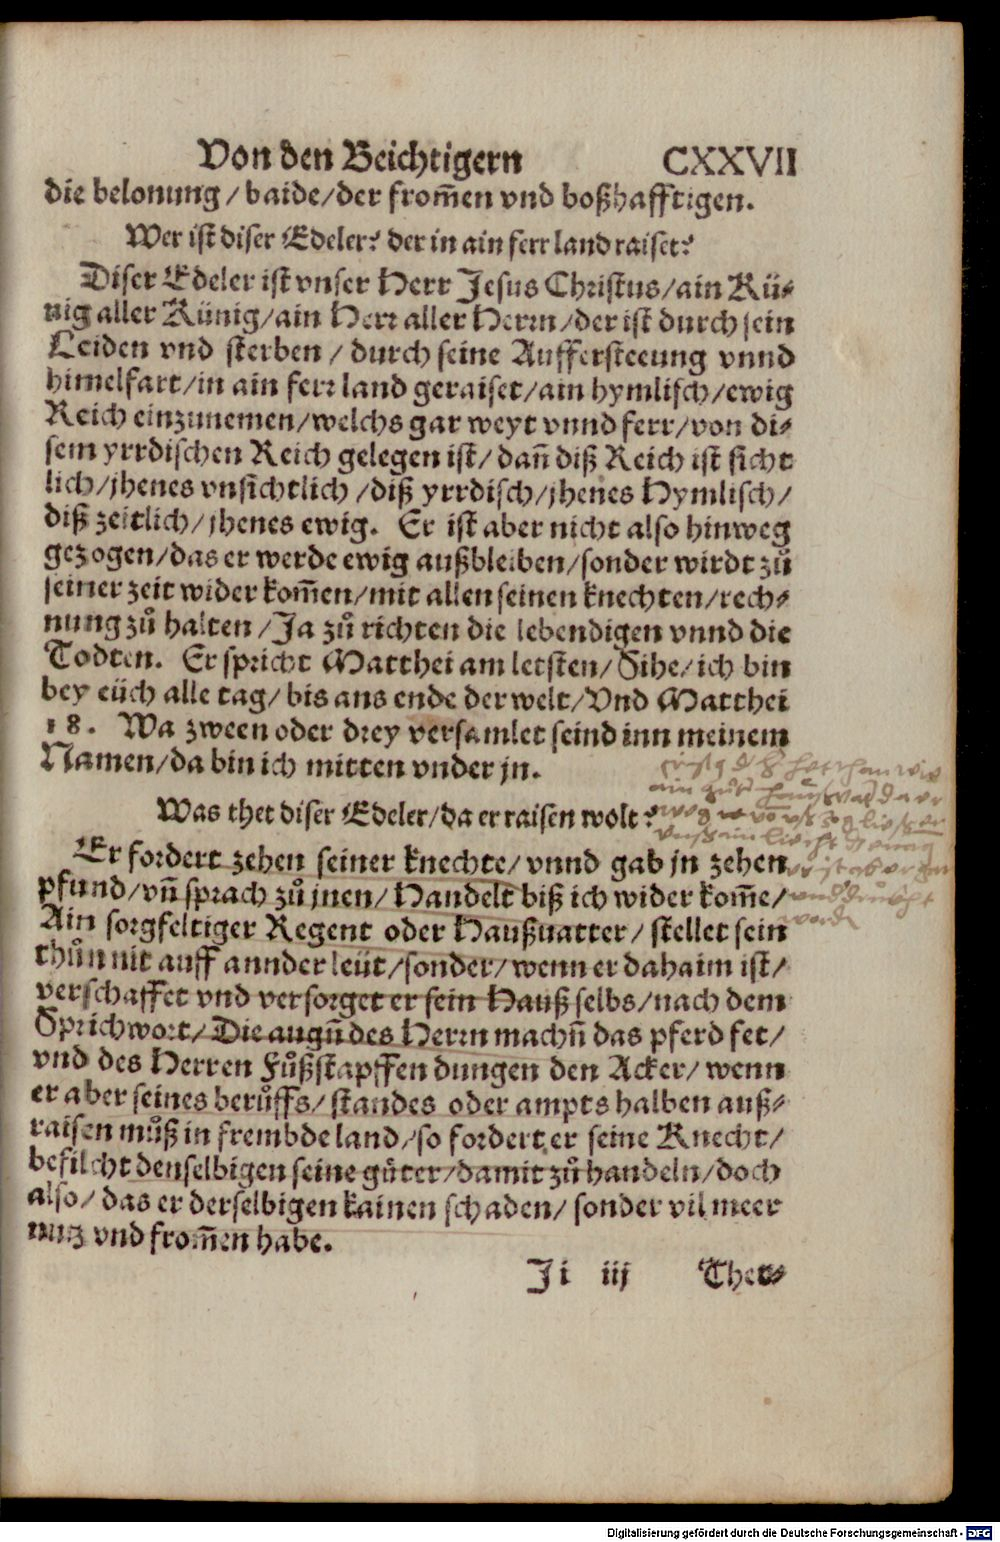 Von den Beichtigern CXXVII
die belonung / baide/der from̃en vnd boßhafftigen.
Wer ist diser Edeler? der in ain ferr land raiset?
Diser Edeler ist vnser Herr Jesus Christus/ain Kü⸗
nig aller Künig/ain Herr aller Herrn/der ist durch sein
Leiden vnd sterben / durch seine Auffersteeung vnnd
himelfart/in ain ferr land geraiset/ain hymlisch/ewig
Reich einzunemen/welchs gar weyt vnnd ferr/von di⸗
sem yrrdischen Reich gelegen ist/dañ diß Reich ist sicht
lich/jhenes vnsichtlich /diß yrrdisch/jhenes Hymlisch/
diß zeitlich/jhenes ewig. Er ist aber nicht also hinweg
gezogen/das er werde ewig außbleiben/sonder wirdt zů
seiner zeit wider kom̃en/mit allen seinen knechten/rech⸗
nung zů halten /Ja zů richten die lebendigen vnnd die
Todten. Er spricht Matthei am letsten/Sihe/ich bin
bey eüch alle tag/bis ans ende der welt/Vnd Matthei
18. Wa zween oder drey versamlet seind inn meinem
Namen/da bin ich mitten vnder jn.
Was thet diser Edeler/da er raisen wolt?
Er fordert zehen seiner knechte/ vnnd gab jn zehen
pfund/vñ sprach zů jnen/Handelt biß ich wider kom̃e/
Ain sorgfeltiger Regent oder Haußuatter/ stellet sein
thůn nit auff annder leüt/sonder/wenn er dahaim ist/
verschaffet vnd versorget er sein Hauß selbs/nach dem
Sprichwort/Die augñ des Herrn machñ das pferd fet/
vnd des Herren Fůßstapffen dungen den Acker/ wenn
er aber seines berůffs/ standes oder ampts halben auß⸗
raisen můß in frembde land/so fordert er seine Knecht/
befilcht denselbigen seine gůter/damit zů handeln/doch
also/ das er derselbigen kainen schaden/ sonder vil meer
nutz vnd from̃en habe.
Ji iij Thet⸗
Digitalisierung gefördert durch die Deutsche Forschungsgemeinschaft - DFG